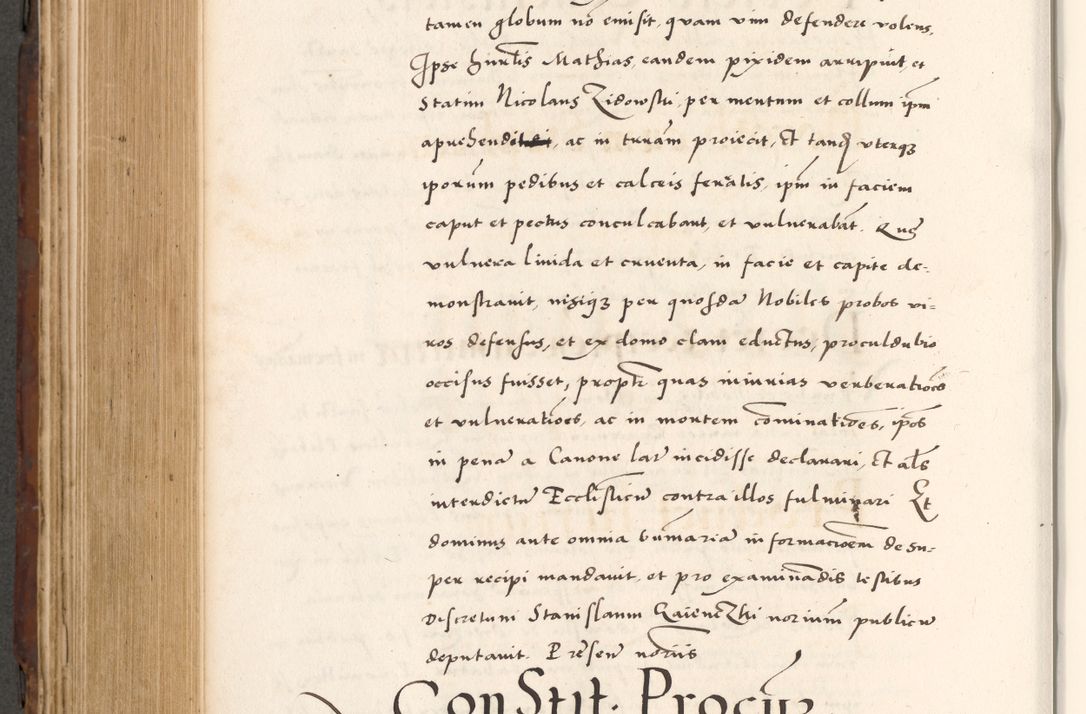 tamen globum nō emisit, quam vim defendere volens,
Ipse Mathias, eandem pixidem arripuit, et
Statim Nicolaus Zidowski, per mentum et collum ip̄m
aprehendit, ac in terram proiecit, Et tandē vterqȝ
ip̄orum pedibus et calceis ferratis, ip̄m in faciem
caput et pectus conculcabant, et vulnerabāt. Que
vulnera liuida et cruenta, in facie et capite de-
monstrauit, nisiqȝ per quosdā Nobiles probos vi-
ros defensus, et ex domo clam eductus, proculdubio
occisus fuisset, propter quas iniurias verberatiōes
et vulneratiōes, ac in mortem cōminatiōes, ip̄os
in penā a Canone lat incidisse declarari, Et al̄s
interdictū Eccl̄isticū contra illos fulminari Et
dominus ante omnia sūmariā informaciōem desu-
per recipi mandauit, et pro examinādis testibus
Discretum Stanislaum norium publicū
deputauit. P̄rsen̄ noriis
Constit. Procur̄